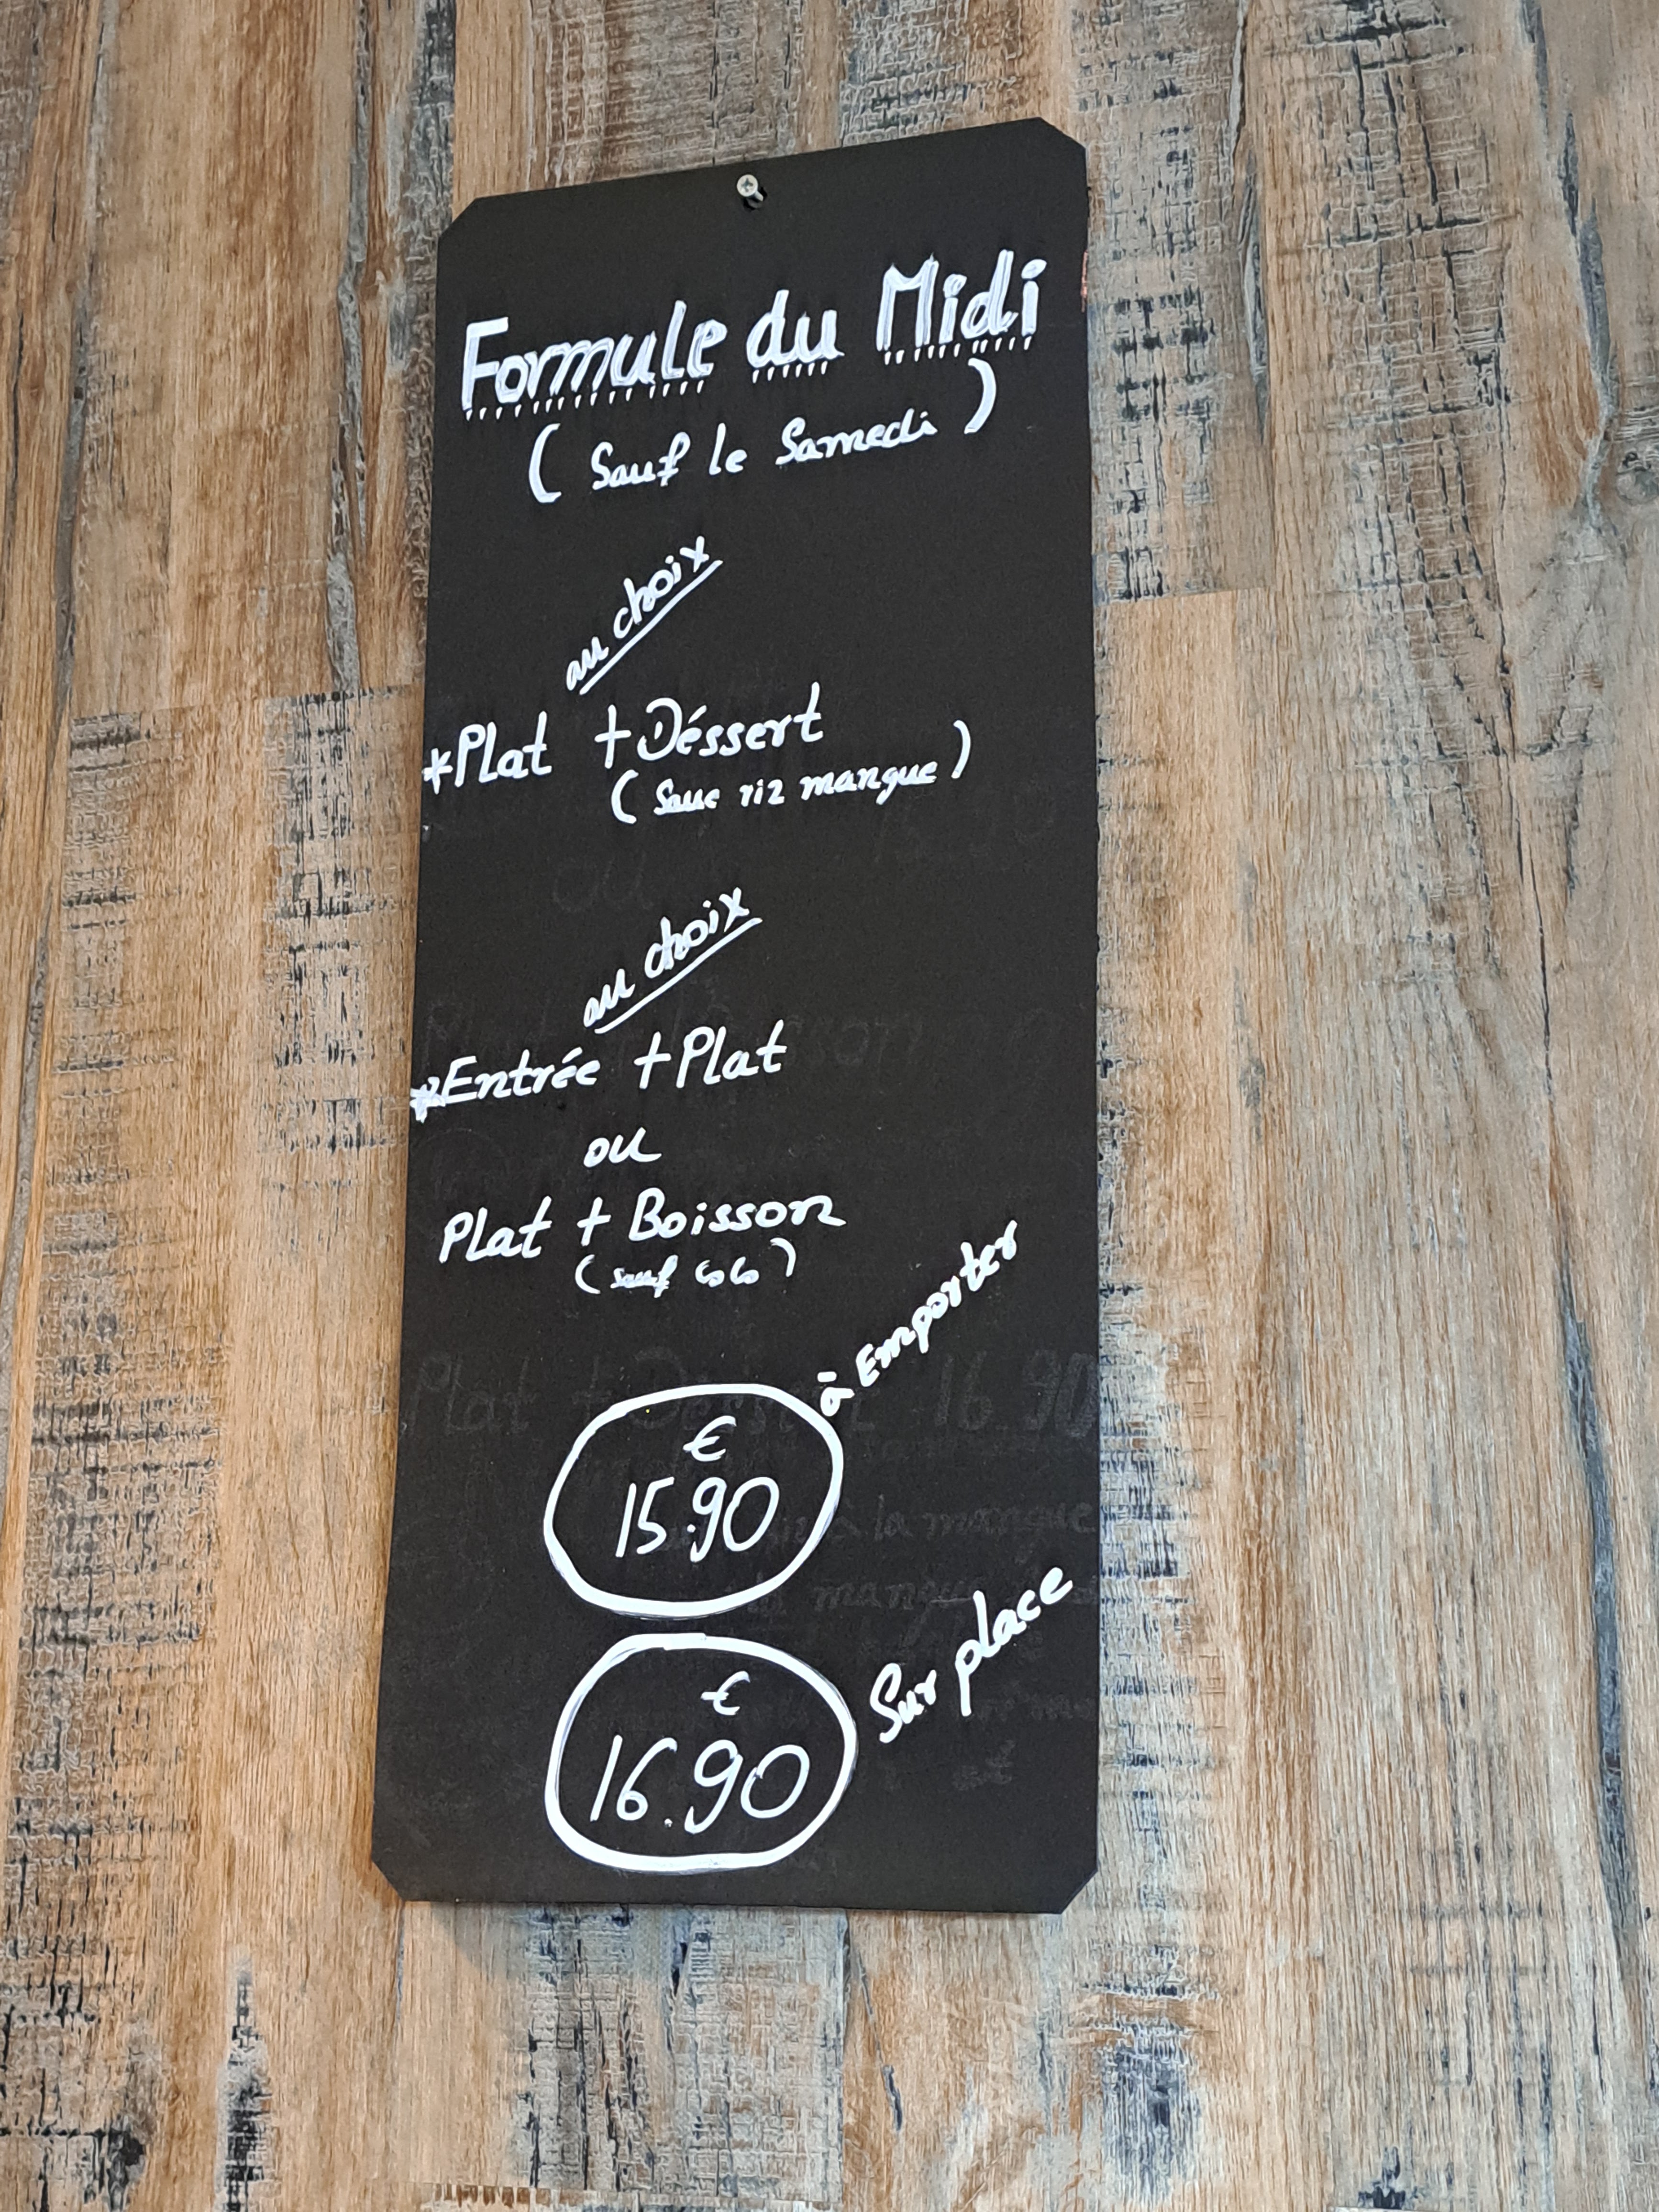 Formule du Midi
( Sauf le Samedi )
au choix
*Plat + Déssert
( Sauf riz mangue )
au choix
*Entrée + Plat
ou
Plat + Boisson
( sauf coco )
à Emporter
€
15.90
Sur place
€
16.90